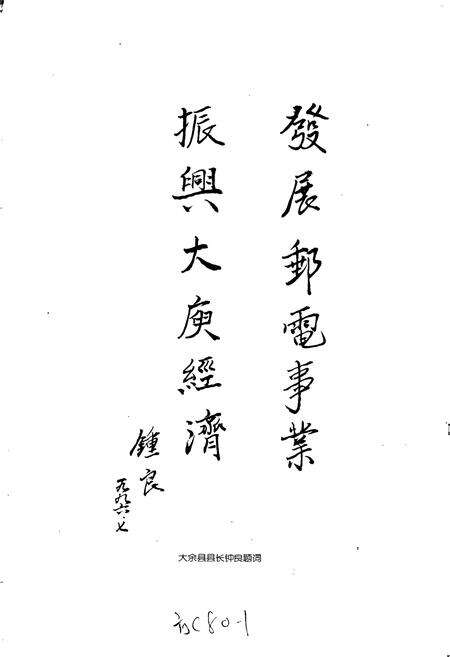 發展郵電事業
振興大庾經濟
鍾良
一九九六.七
大余县县长钟良题词